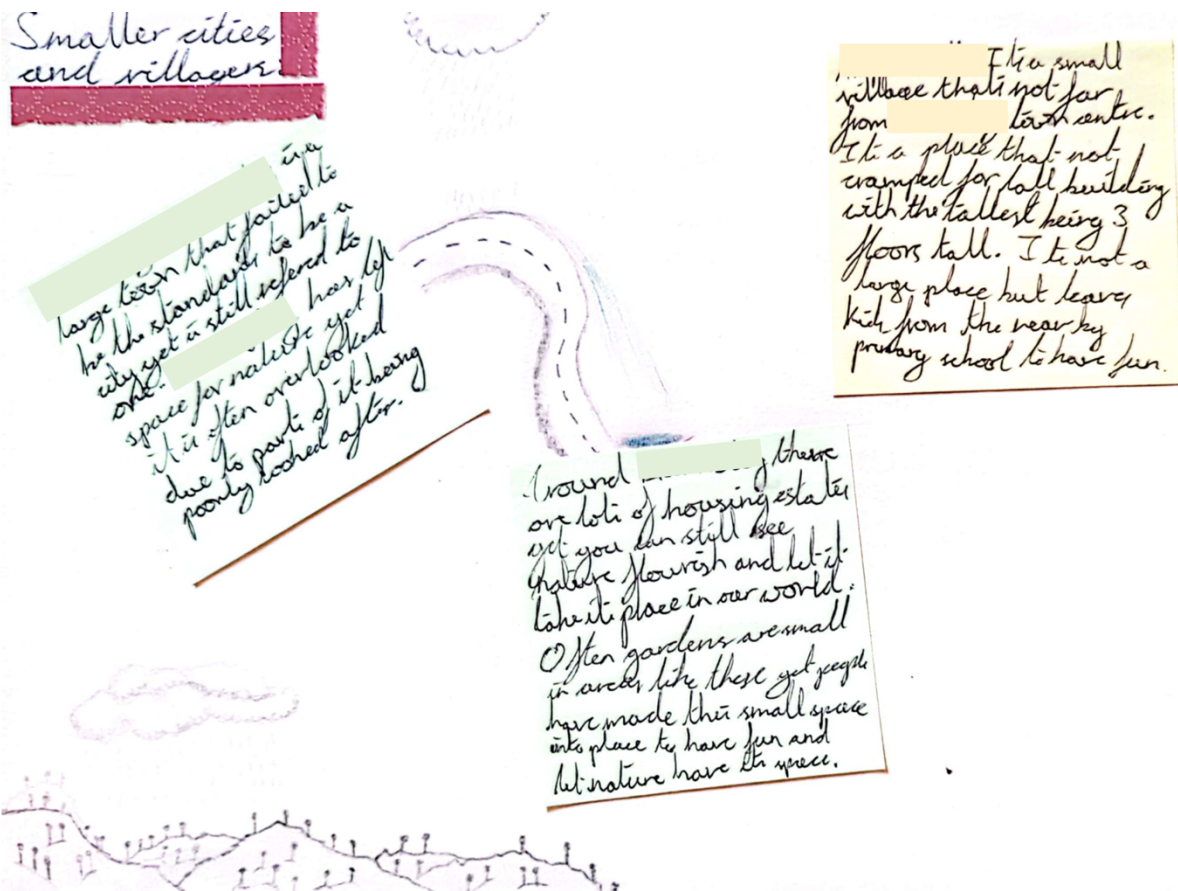 Smaller cities
and villages:
is a
large town that failed to
be the standards to be a
city yet is still refered to
one. has left
space for nature yet
it is often overlooked
due to parts of it being
poorly looked after.
Around there
are lots of housing estates
yet you can still see
nature flourish and let it
take its place in our world.
Often gardens are small
in areas like these yet people
have made this small space
into place to have fun and
let nature have its space.
Its a small
village thats not far
from town centre.
Its a place that not
cramped for tall building
with the tallest being 3
floors tall. Its not a
large place but leaves
kids from the near by
primary school to have fun.